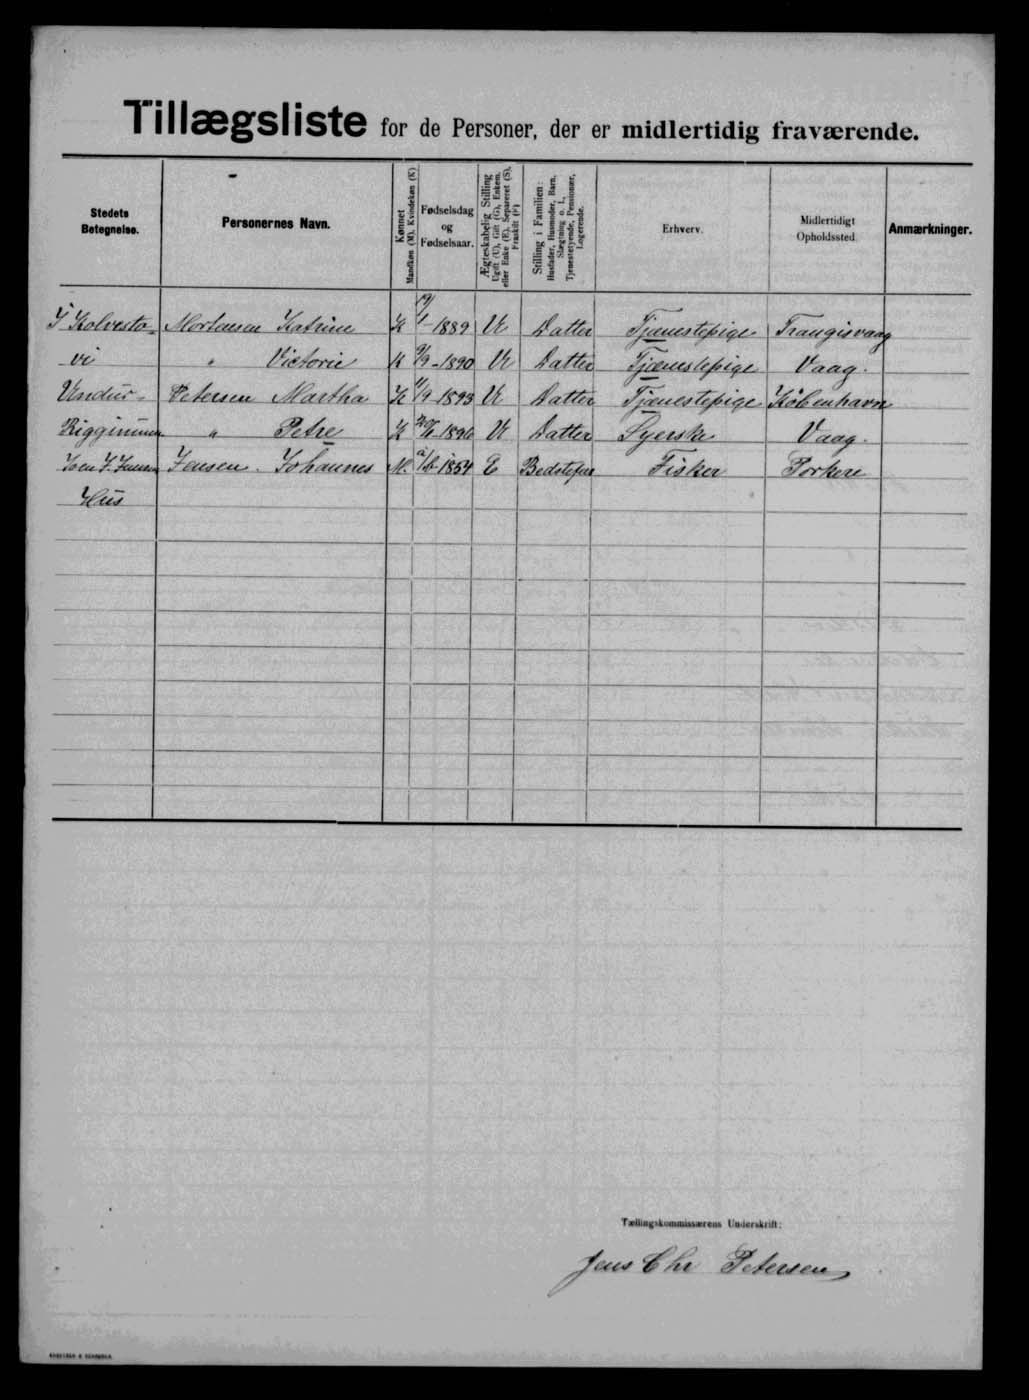 Tillægsliste for de Personer, der er midlertidig fraværende.
Stedets Betegnelse.
Personernes Navn.
Kønnet Mandkøn (M), Kvindekøn (K)
Fødselsdag og Fødselsaar.
Ægteskabelig Stilling Ugift (U), Gift (G), Enkem. eller Enke (E), Separeret (S), Fraskilt (F)
Stilling i Familien: Husfader, Husmoder, Barn, Slægtning o. l., Tjenestetyende, Pensionær, Logerende.
Erhverv.
Midlertidigt Opholdssted.
Anmærkninger.
Í Kolvesto- Mortensen Katrine K 19/1-1889 U Datter Tjænestepige Trangisvaag
vi " Victorie K 9/9-1890 U Datter Tjænestepige Vaag.
Undur- Petersen Martha K 11/9-1893 U Datter Tjænestepige København
Rigginum " Petre K 1896 U Datter Syerske Vaag.
Jensen Johannes M. 1854 E Bedstefar Fisker Porkere
Hus
Tællingskommissærens Underskrift:
Jens Chr Petersen